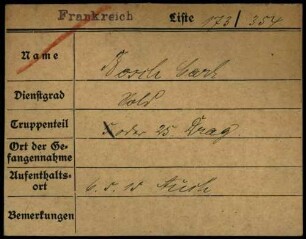 Frankreich Liste 173/354
Name Carl
Dienstgrad Sold
Truppenteil oder 25. Drag.
Ort der Ge-
fangennahme
Aufenthalts-
ort 6.5.15
Bemerkungen